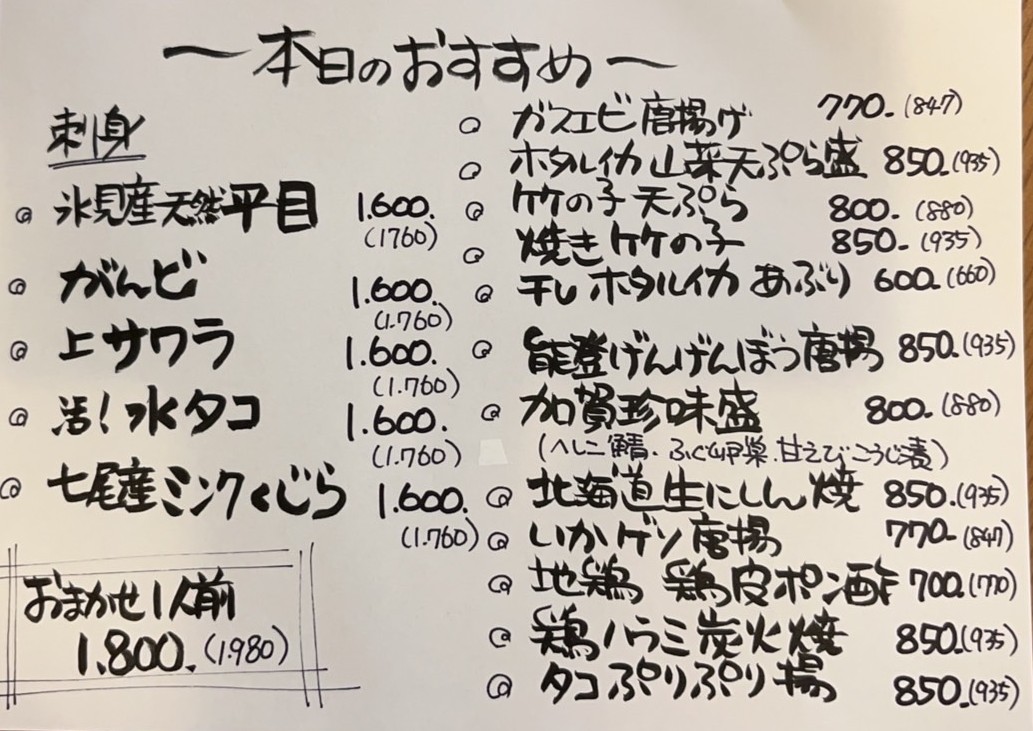 〜本日のおすすめ〜
刺身
◎ 氷見産天然平目 1.600.
(1760)
◎ がんど 1.600.
(1.760)
◎ 上サワラ 1.600.
(1.760)
◎ 活！水タコ 1.600.
(1.760)
◎ 七尾産ミンクくじら 1.600.
(1.760)
おまかせ1人前
1.800.(1.980)
◎ ガスエビ唐揚げ 770.(847)
◎ ホタルイカ山菜天ぷら盛 850.(935)
◎ 竹の子天ぷら 800.(880)
◎ 焼き竹の子 850.(935)
◎ 干しホタルイカあぶり 600.(660)
◎ 能登げんげんぼう唐揚 850.(935)
◎ 加賀珍味盛 800.(880)
(へしこ鯖.ふぐ卵巣.甘えびこうじ漬)
◎ 北海道生にしん焼 850.(935)
◎ いかゲソ唐揚 770.(847)
◎ 地鶏 鶏皮ポン酢 700.(770)
◎ 鶏ハラミ炭火焼 850.(935)
◎ タコぷりぷり揚 850.(935)